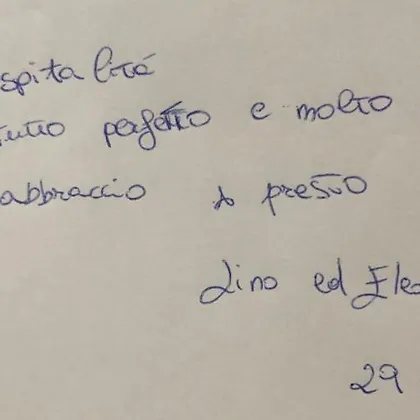 spitalità
tutto perfetto e molto
abbraccio A presto
Lino ed Ele
29